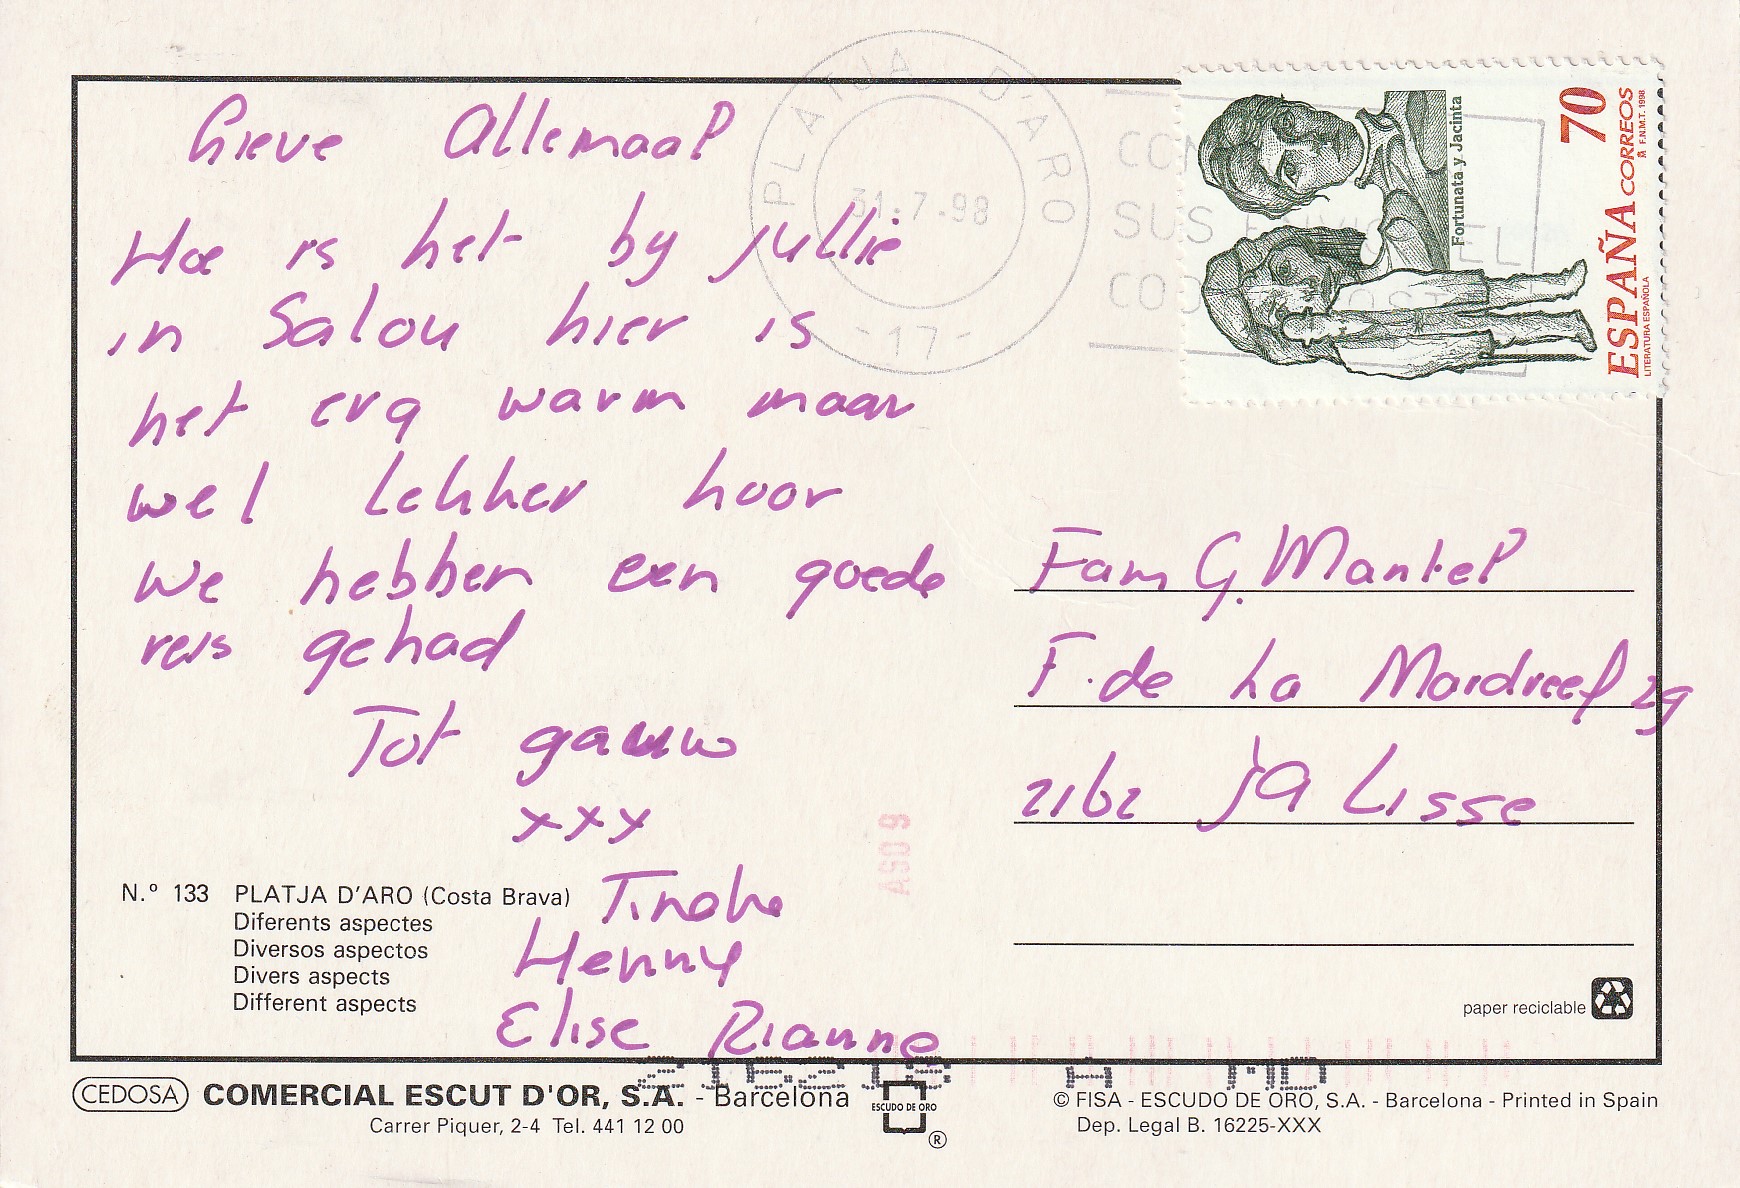 Lieve Allemaal
Hoe is het by jullie
in Salou hier is
het erg warm maar
wel lekker hoor
We hebben een goede
reis gehad
Tot gauw
xxx
Tineke
Henny
Elise Rianne
PLATJA D'ARO
31-7-98
-17-
70
ESPAÑA CORREOS
F.N.M.T. 1998
LITERATURA ESPAÑOLA
Fortunata y Jacinta
Fam G. Mantel
F. de La Mardreef 29
2162 JA Lisse
AGO 9
N.º 133 PLATJA D'ARO (Costa Brava)
Diferents aspectes
Diversos aspectos
Divers aspects
Different aspects
paper reciclable
CEDOSA COMERCIAL ESCUT D'OR, S.A. - Barcelona
Carrer Piquer, 2-4 Tel. 441 12 00
ESCUDO DE ORO
®
© FISA - ESCUDO DE ORO, S.A. - Barcelona - Printed in Spain
Dep. Legal B. 16225-XXX